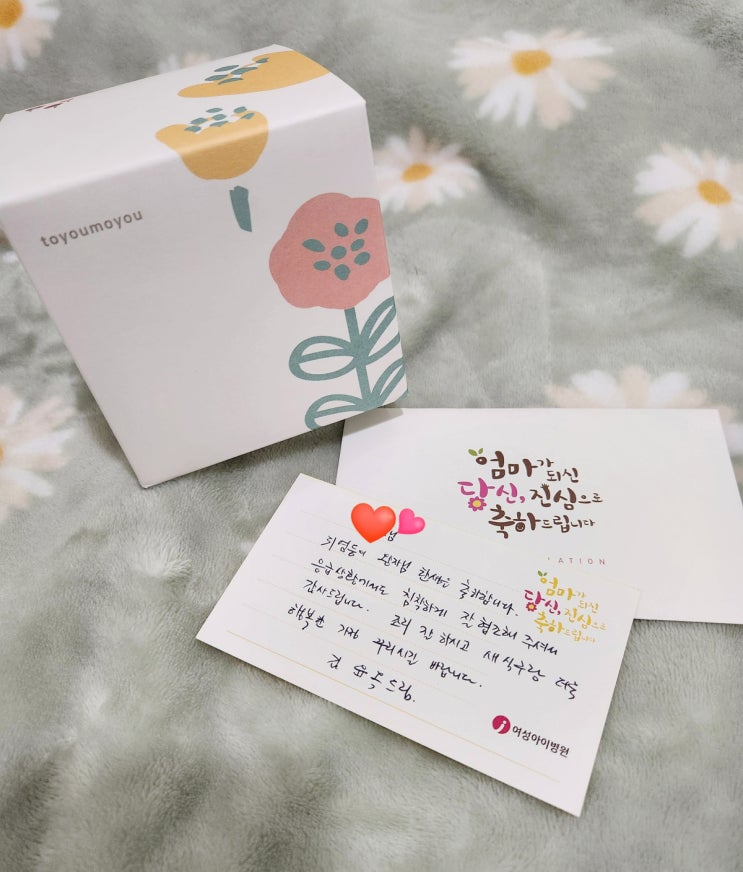 toyoumoyou
엄마가 되신
당신, 진심으로
축하드립니다
ATION
님
왕자님 탄생을 축하합니다.
응급상황에서도 침착하게 잘 협조해 주셔서
감사드립니다. 조리 잘 하시고 새식구랑 더욱
행복한 가정 꾸리시길 바랍니다.
드림.
엄마가 되신
당신, 진심으로
축하드립니다
여성아이병원